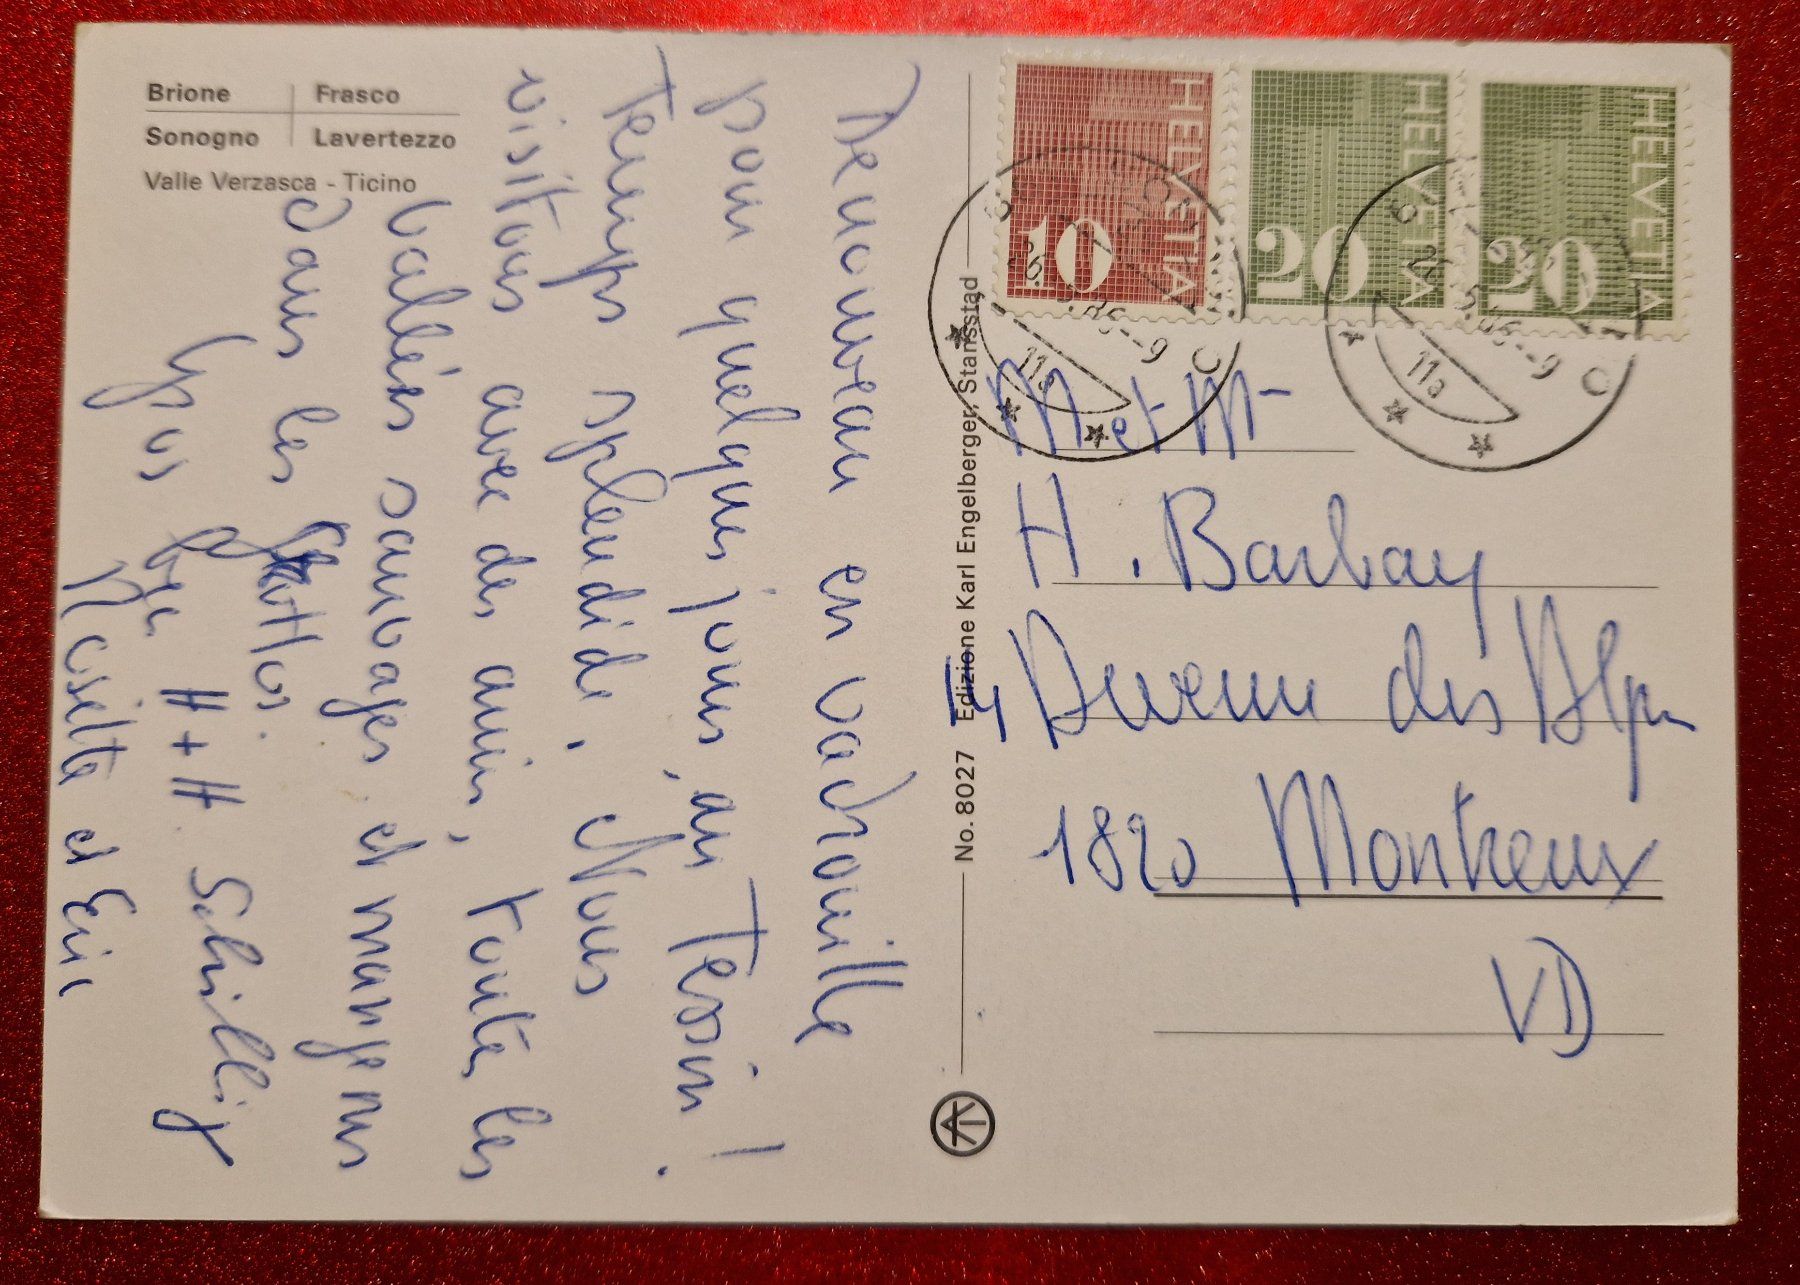 Brione Frasco
Sonogno Lavertezzo
Valle Verzasca - Ticino
De nouveau en vadrouille
pour quelques jours, au Tessin !
Temps splendide. Nous
visitons avec des amis, toutes les
vallées sauvages et mangeons
dans les grottos.
H + H Schillig
Rosette et Eric
No. 8027 Edizione Karl Engelberger, Stansstad
HELVETIA 10
HELVETIA 20
HELVETIA 20
11a
11a
M et Mme
H. Barbay
14 Avenue des Alpes
1820 Montreux
VD